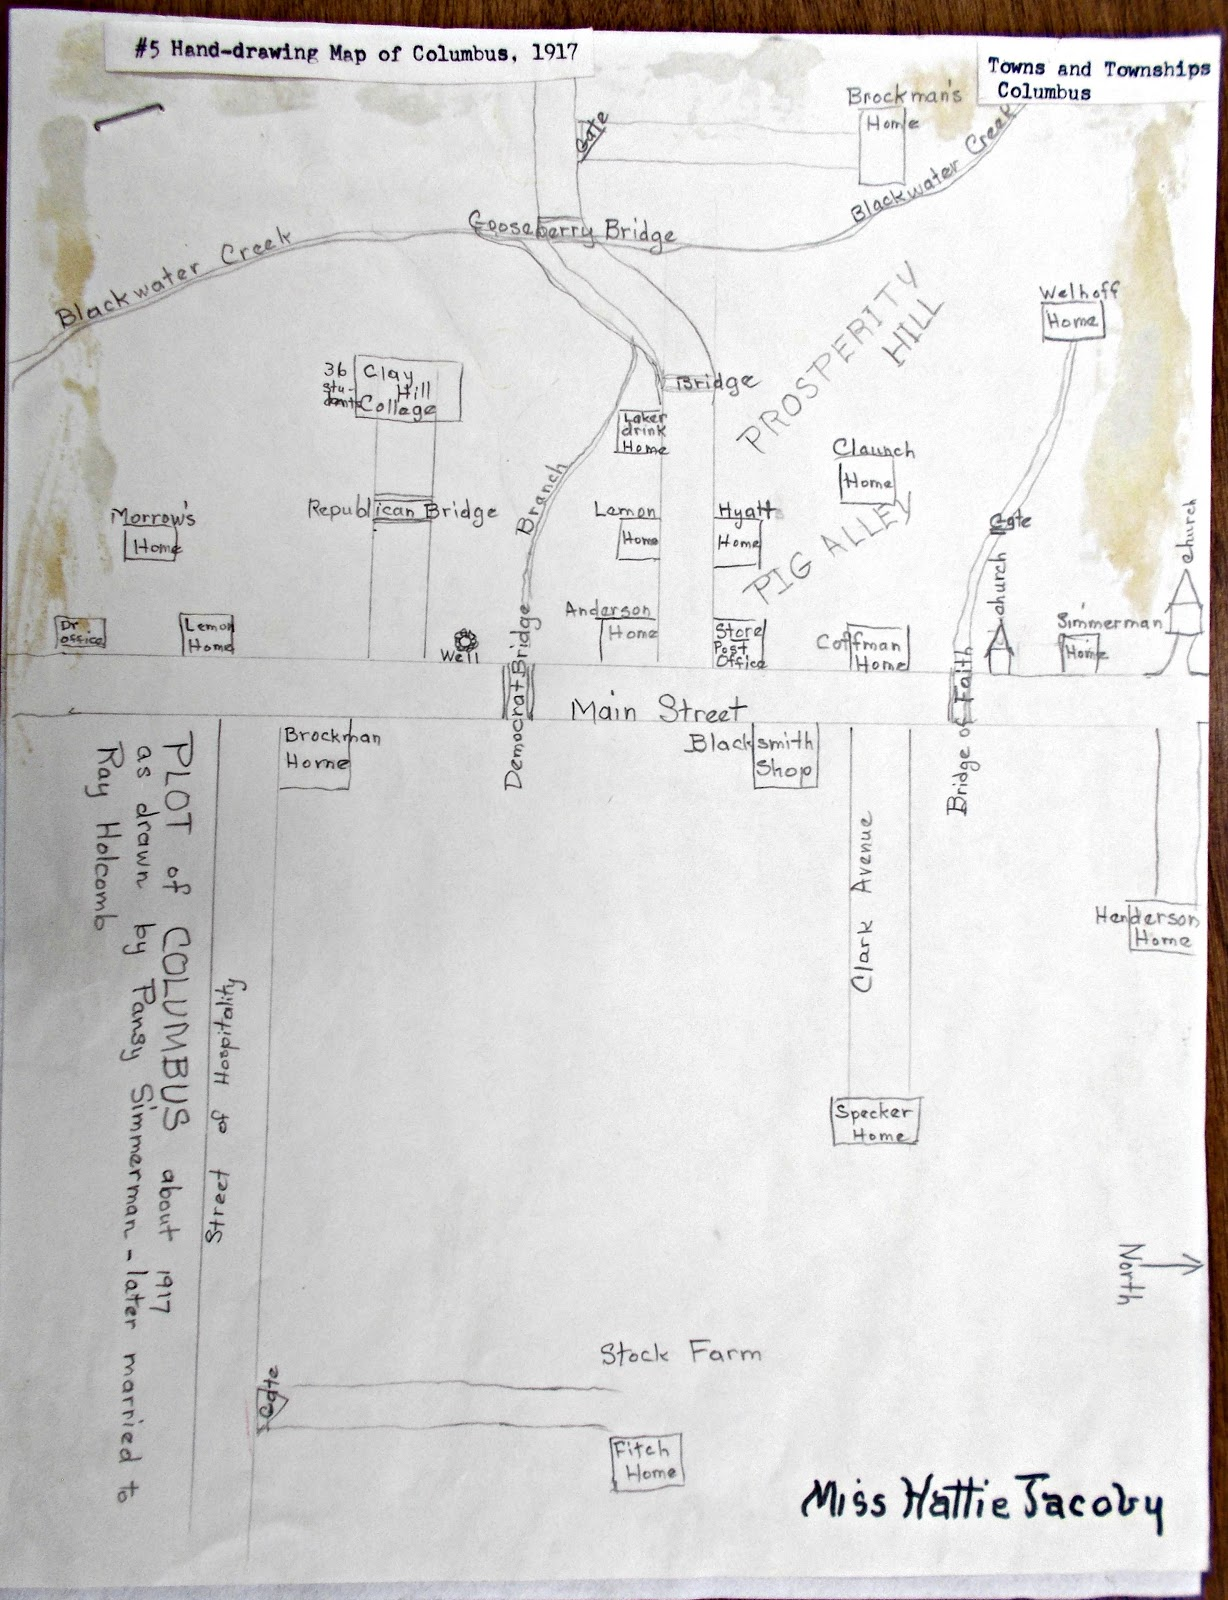 #5 Hand-drawing Map of Columbus, 1917
Towns and Townships
Columbus
Brockman's
Home
Gate
Blackwater Creek
Gooseberry Bridge
Blackwater Creek
Welhoff
Home
PROSPERITY
HILL
36
stu-
dents
Clay
Hill
College
Bridge
Laker
drink
Home
Claunch
Home
Branch
Republican Bridge
Morrow's
Home
Lemon
Home
Hyatt
Home
PIG ALLEY
Gate
church
church
Dr
office
Lemon
Home
Well
Anderson
Home
Store
Post
Office
Coffman
Home
Simmerman
Home
Democrat Bridge
Main Street
Bridge of Faith
Brockman
Home
Blacksmith
Shop
Clark Avenue
Henderson
Home
Specker
Home
PLOT of COLUMBUS about 1917
as drawn by Pansy Simmerman - later married to
Ray Holcomb
Street of Hospitality
North
Stock Farm
Gate
Fitch
Home
Miss Hattie Jacoby